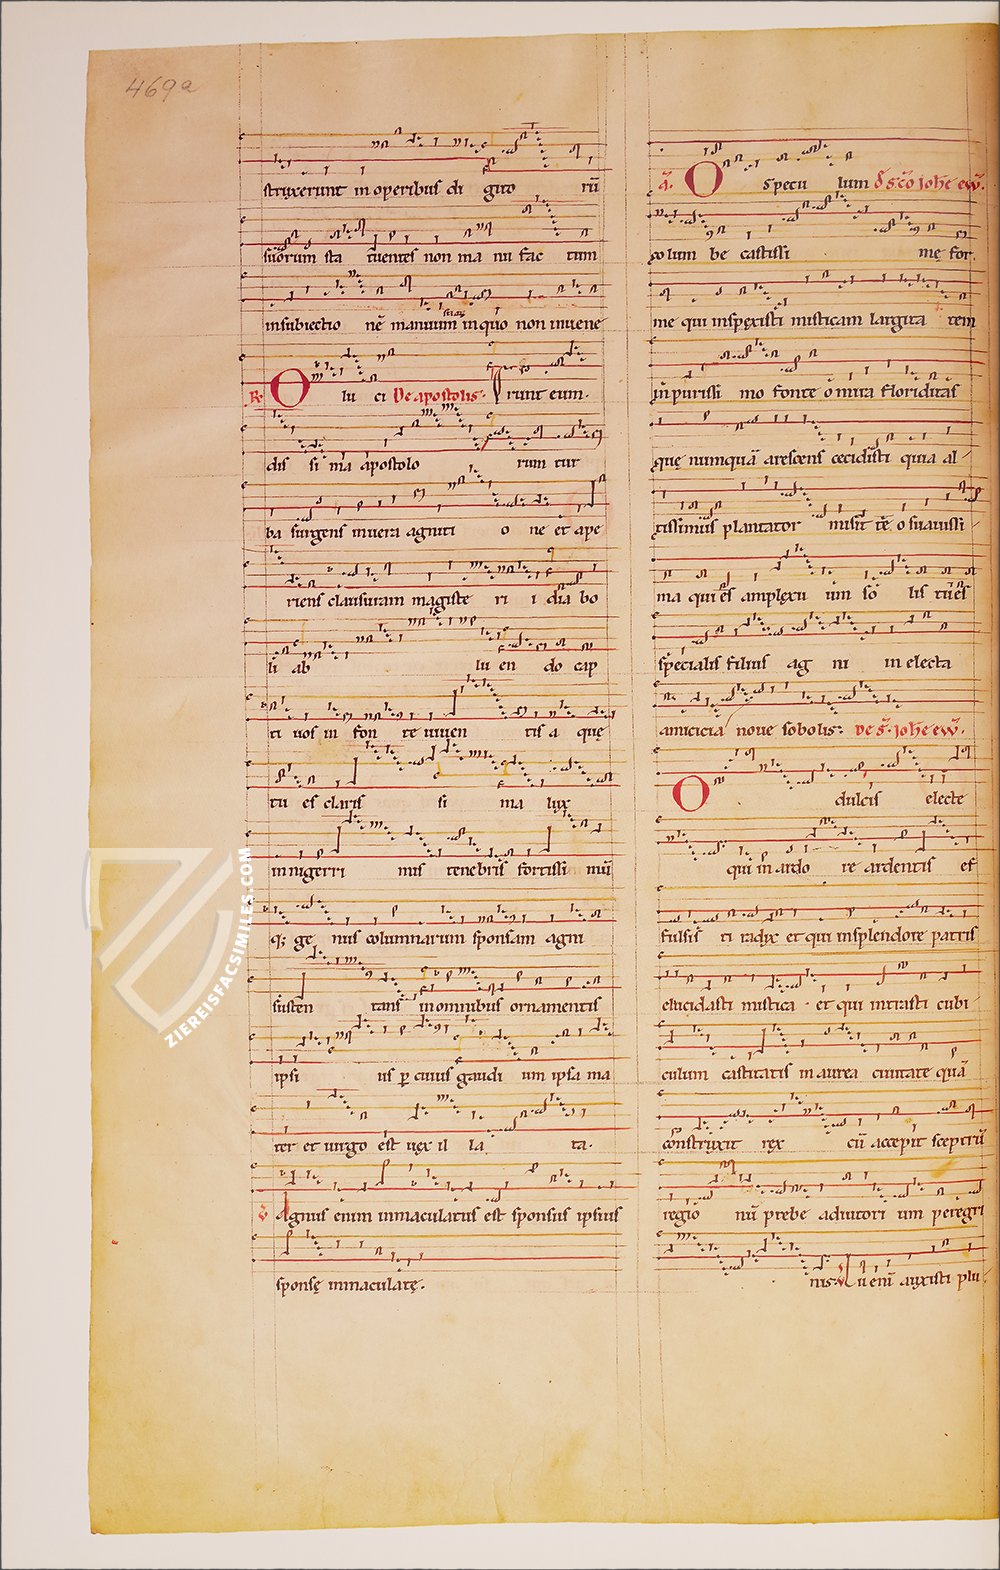 469a
struxerunt in operibus di gito rū
suorum sta tuentes non ma nu fac tum
in subiectio nē manuum in quo non inuene
R. O lu ci De apostolis. runt eum.
dis si ma apostolo rum tur
ba surgens in uera agniti o ne et ape
riens clausuram magiste ri i dia bo
li ab lu en do cap
ti uos in fon te uiuen tis a quę
tu es claris si ma lux
in nigerri mis tenebris fortissi mū
q; ge nus columnarum sponsam agni
susten tans in omnibus ornamentis
ipsi us p cuius gaudi um ipsa ma
ter et uirgo est uex il la ta.
Agnus enim inmaculatus est sponsus ipsius
sponsę inmaculatę.
A. O specu lum d s. cō johe ew.
columbe castissi mę for
me qui inspexisti misticam largita tem
in purissi mo fonte o mira floriditas
quę numquā arescens cecidisti quia al
tissimus plantator misit te o suauissi
ma qui es amplexu um so lis tu es
specialis filius ag ni in electa
amicicia noue sobolis. De s. johe ew.
O dulcis electe
qui in ardo re ardentis ef
fulsis ti radix et qui in splendore patris
elucidasti mistica et qui intrasti cubi
culum castitatis in aurea ciuitate quā
construxit rex cū accepit sceptrū
regio nū prebe adiutori um peregri
nis. u eni auxisti plu
ZIEREISFACSIMILES.COM